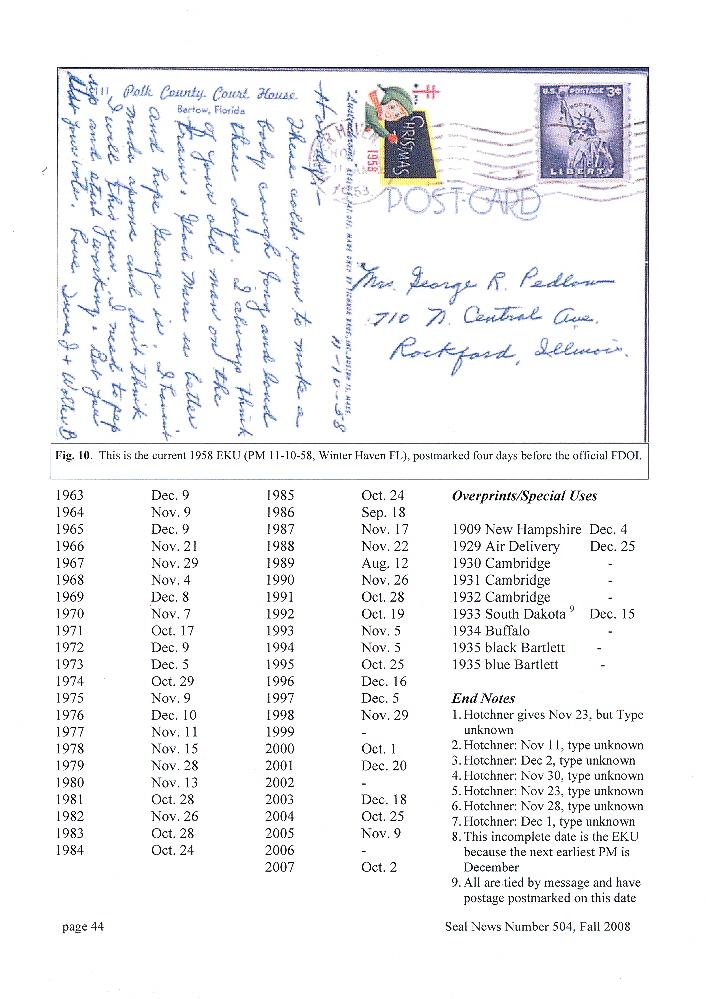 Polk County Court House
Bartow, Florida
Howdy -
These colds seem to make a
body cough long and loud
these days. I always think
of your old man on the
train. Glad Mara is better
and hope George is. I haven't
made aprons and don't think
I will this year. I need to pep
up and start working. Bet you
Love
CHRISTMAS
1958
U.S. POSTAGE 3¢
IN GOD WE TRUST
LIBERTY
POST-CARD
11-10-58
Mrs. George R. Pedlow
710 N. Central Ave.
Rockford, Illinois.
Fig. 10. This is the current 1958 EKU (PM 11-10-58, Winter Haven FL), postmarked four days before the official FDOI.
1963 Dec. 9
1964 Nov. 9
1965 Dec. 9
1966 Nov. 21
1967 Nov. 29
1968 Nov. 4
1969 Dec. 8
1970 Nov. 7
1971 Oct. 17
1972 Dec. 9
1973 Dec. 5
1974 Oct. 29
1975 Nov. 9
1976 Dec. 10
1977 Nov. 11
1978 Nov. 15
1979 Nov. 28
1980 Nov. 13
1981 Oct. 28
1982 Nov. 26
1983 Oct. 28
1984 Oct. 24
1985 Oct. 24
1986 Sep. 18
1987 Nov. 17
1988 Nov. 22
1989 Aug. 12
1990 Nov. 26
1991 Oct. 28
1992 Oct. 19
1993 Nov. 5
1994 Nov. 5
1995 Oct. 25
1996 Dec. 16
1997 Dec. 5
1998 Nov. 29
1999 -
2000 Oct. 1
2001 Dec. 20
2002 -
2003 Dec. 18
2004 Oct. 25
2005 Nov. 9
2006 -
2007 Oct. 2
Overprints/Special Uses
1909 New Hampshire Dec. 4
1929 Air Delivery Dec. 25
1930 Cambridge -
1931 Cambridge -
1932 Cambridge -
1933 South Dakota 9 Dec. 15
1934 Buffalo -
1935 black Bartlett -
1935 blue Bartlett -
End Notes
1. Hotchner gives Nov 23, but Type
unknown
2. Hotchner: Nov 11, type unknown
3. Hotchner: Dec 2, type unknown
4. Hotchner: Nov 30, type unknown
5. Hotchner: Nov 23, type unknown
6. Hotchner: Nov 28, type unknown
7. Hotchner: Dec 1, type unknown
8. This incomplete date is the EKU
because the next earliest PM is
December
9. All are tied by message and have
postage postmarked on this date
page 44
Seal News Number 504, Fall 2008